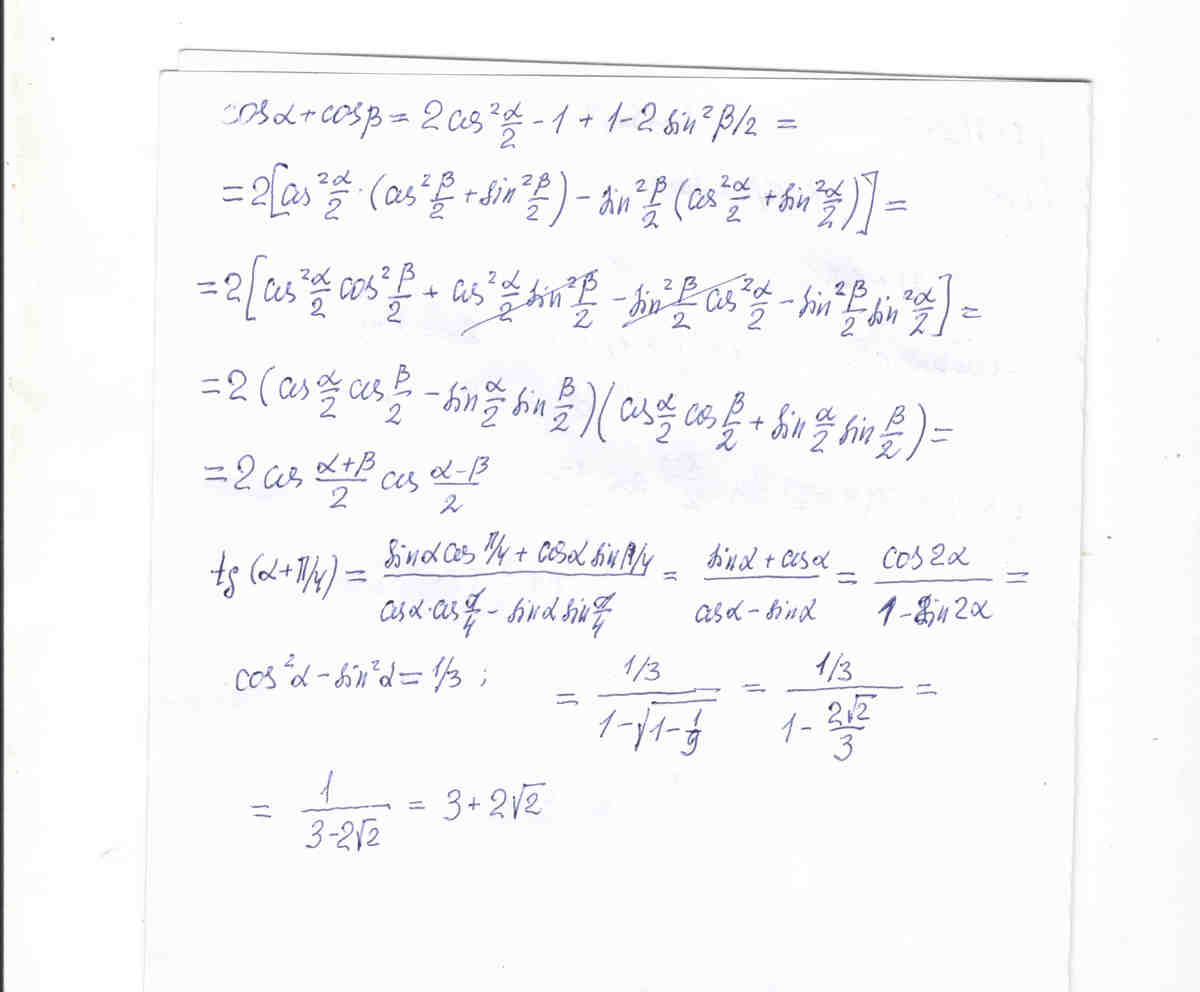 cosα + cosβ = 2cos²α/2 - 1 + 1 - 2sin²β/2 =
= 2[cos²α/2 · (cos²β/2 + sin²β/2) - sin²β/2 (cos²α/2 + sin²α/2)] =
= 2[cos²α/2 cos²β/2 + cos²α/2 sin²β/2 - sin²β/2 cos²α/2 - sin²β/2 sin²α/2] =
= 2(cos α/2 cos β/2 - sin α/2 sin β/2)(cos α/2 cos β/2 + sin α/2 sin β/2) =
= 2cos (α+β)/2 cos (α-β)/2
tg(α+π/4) = (sinα cos π/4 + cosα sin π/4)/(cosα·cos π/4 - sinα sin π/4) = (sinα + cosα)/(cosα - sinα) = cos2α/(1 - sin2α) =
cos²α - sin²α = 1/3 ; = (1/3)/(1-√(1-1/9)) = (1/3)/(1 - 2√2/3) =
= 1/(3-2√2) = 3+2√2